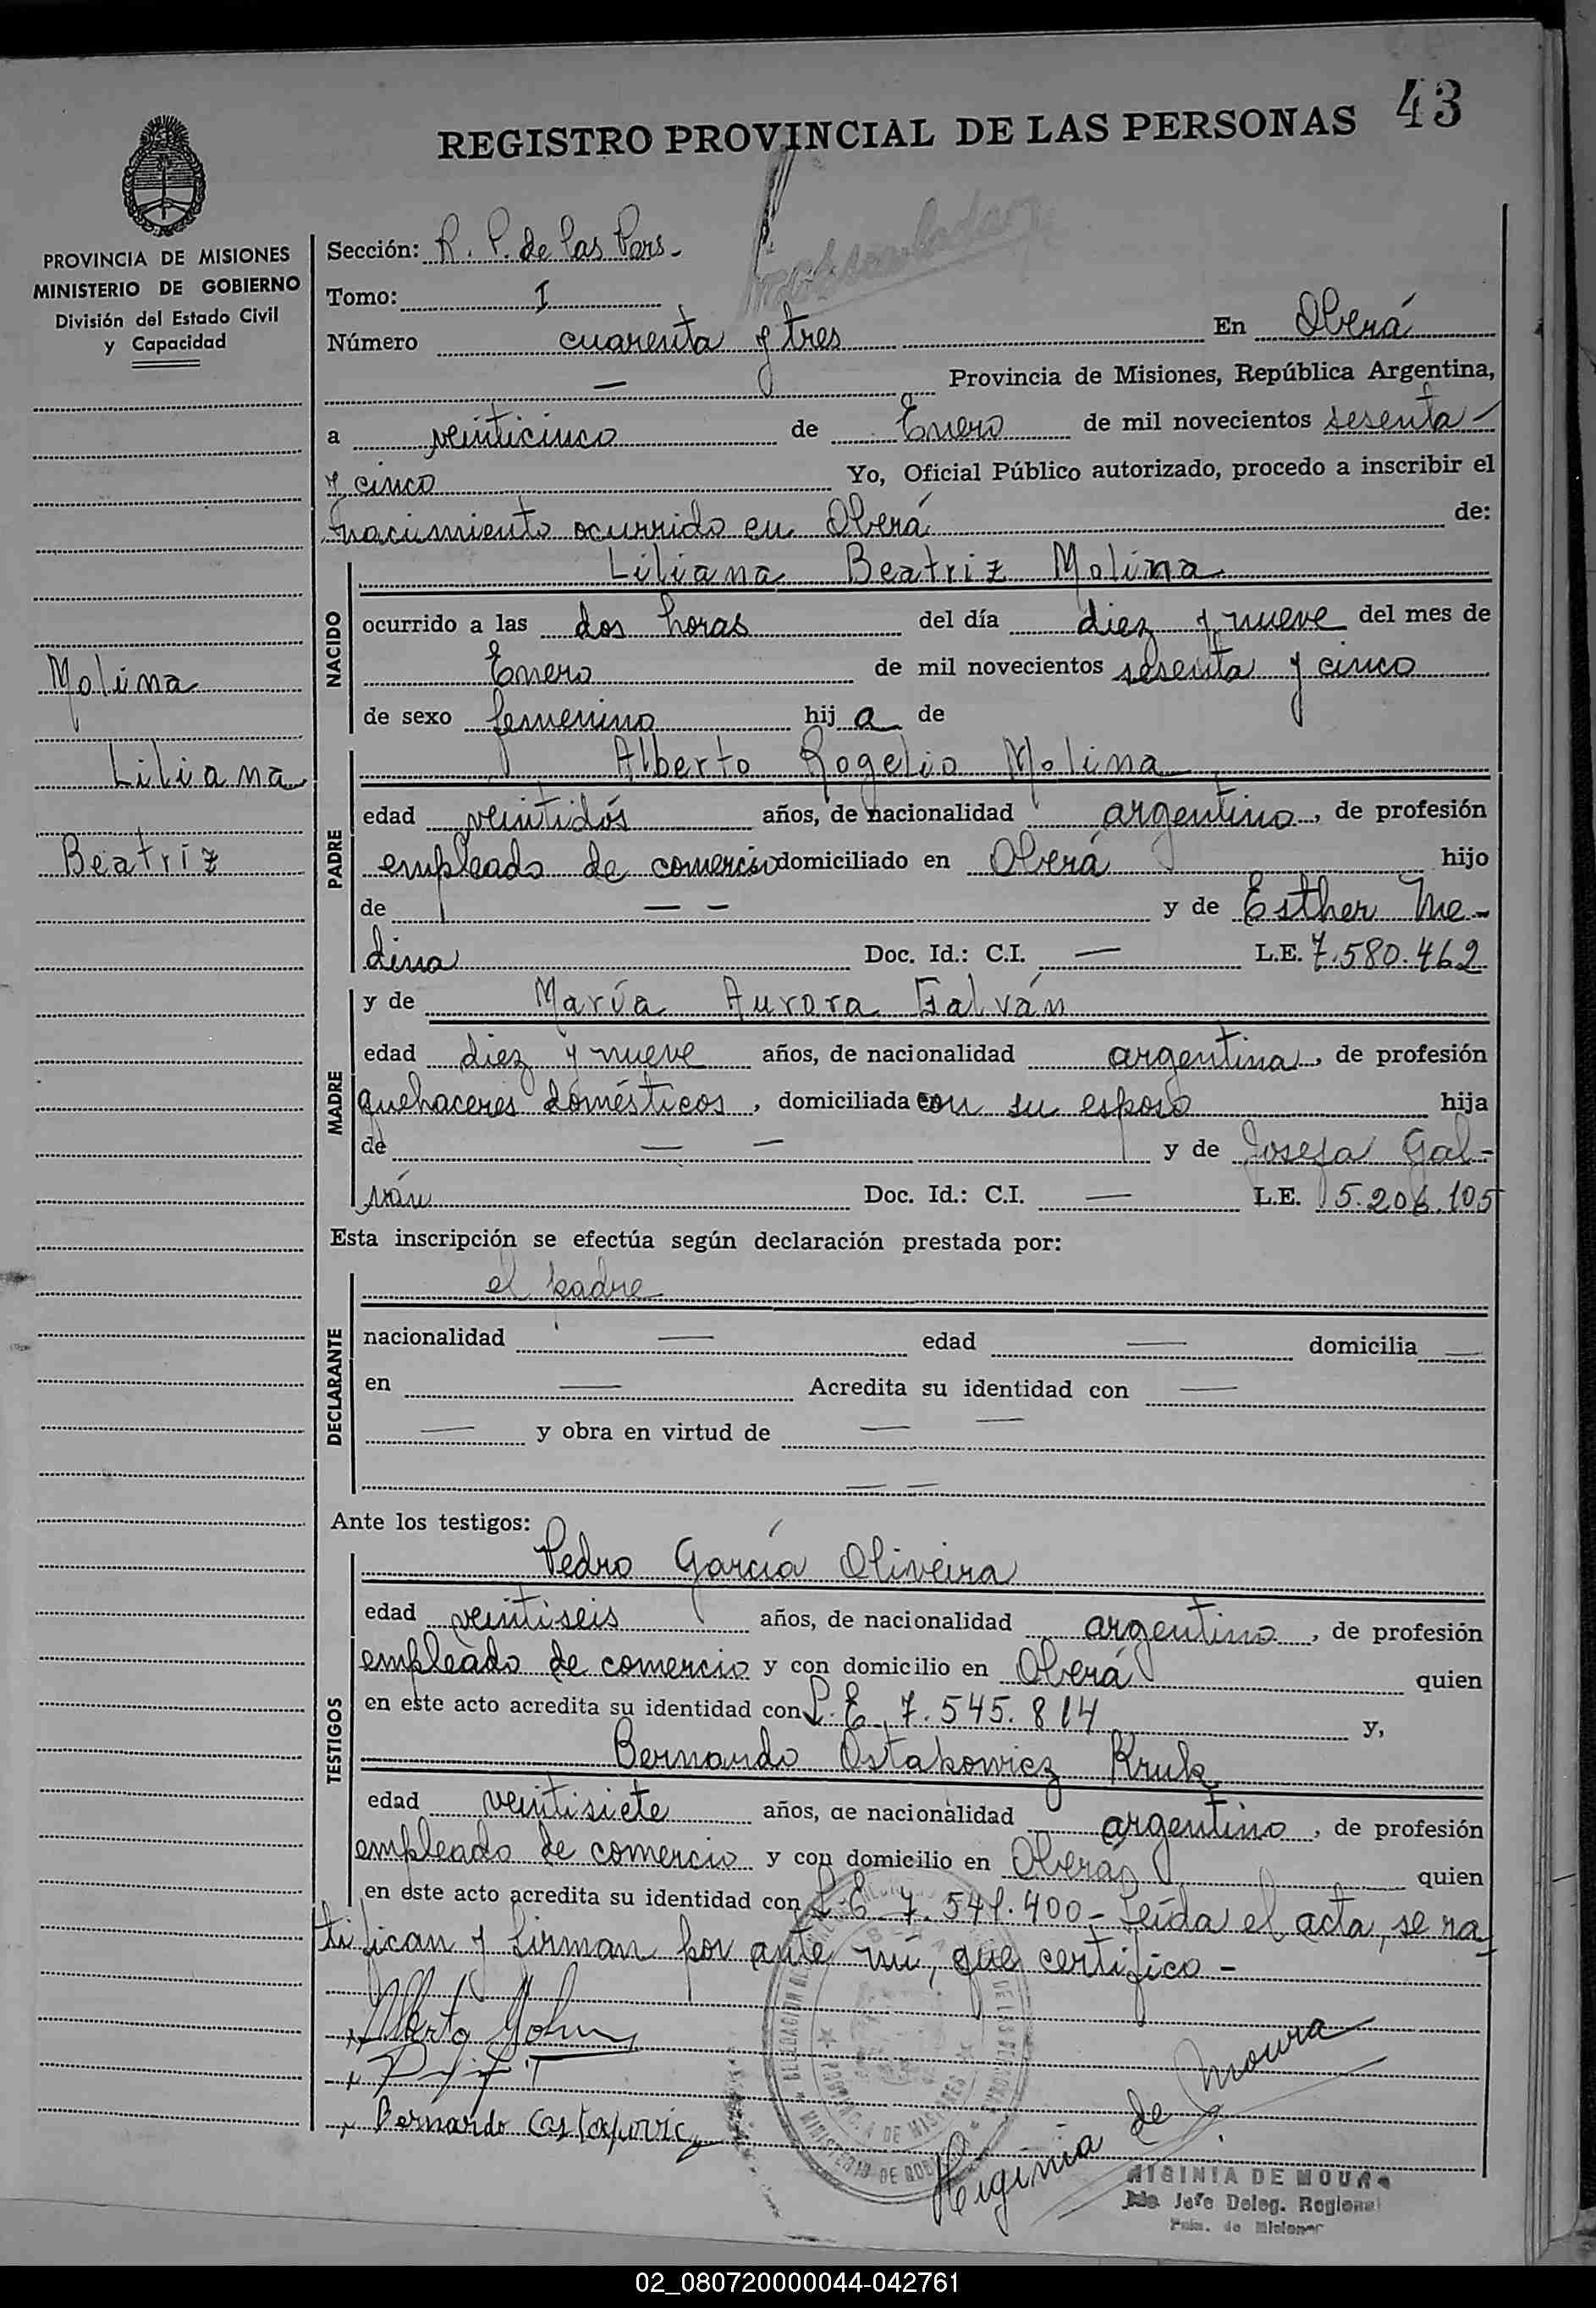 REGISTRO PROVINCIAL DE LAS PERSONAS 43
PROVINCIA DE MISIONES
MINISTERIO DE GOBIERNO
División del Estado Civil
y Capacidad
Molina
Liliana
Beatriz
Sección: R. P. de las Pers.
Tomo: I
Número cuarenta y tres En Oberá
— Provincia de Misiones, República Argentina,
a veinticinco de Enero de mil novecientos sesenta
y cinco Yo, Oficial Público autorizado, procedo a inscribir el
nacimiento ocurrido en Oberá de:
NACIDO
Liliana Beatriz Molina
ocurrido a las dos horas del día diez y nueve del mes de
Enero de mil novecientos sesenta y cinco
de sexo femenino hij a de
PADRE
Alberto Rogelio Molina
edad veintidós años, de nacionalidad argentino, de profesión
empleado de comercio domiciliado en Oberá hijo
de — — y de Esther Me-
dina Doc. Id.: C.I. — L.E. 7.580.462
MADRE
y de María Aurora Galván
edad diez y nueve años, de nacionalidad argentina, de profesión
quehaceres domésticos, domiciliada con su esposo hija
de — — y de Josefa Gal-
ván Doc. Id.: C.I. — L.E. 5.206.105
Esta inscripción se efectúa según declaración prestada por:
DECLARANTE
el padre
nacionalidad — edad — domicilia —
en — Acredita su identidad con —
— y obra en virtud de — —
— —
Ante los testigos:
TESTIGOS
Pedro García Oliveira
edad veintiseis años, de nacionalidad argentino, de profesión
empleado de comercio y con domicilio en Oberá quien
en este acto acredita su identidad con L. E. 7.545.814 y,
Bernardo Ostakowicz Kruk
edad veintisiete años, de nacionalidad argentino, de profesión
empleado de comercio y con domicilio en Oberá quien
en este acto acredita su identidad con L. E. 7.541.400.- Leída el acta, se ra-
tifican y firman por ante mí, que certifico -
Alberto Molina
Bernardo
Higinia de Moura
HIGINIA DE MOURA
Jefe Deleg. Regional
Pcia. de Misiones
02_080720000044-042761